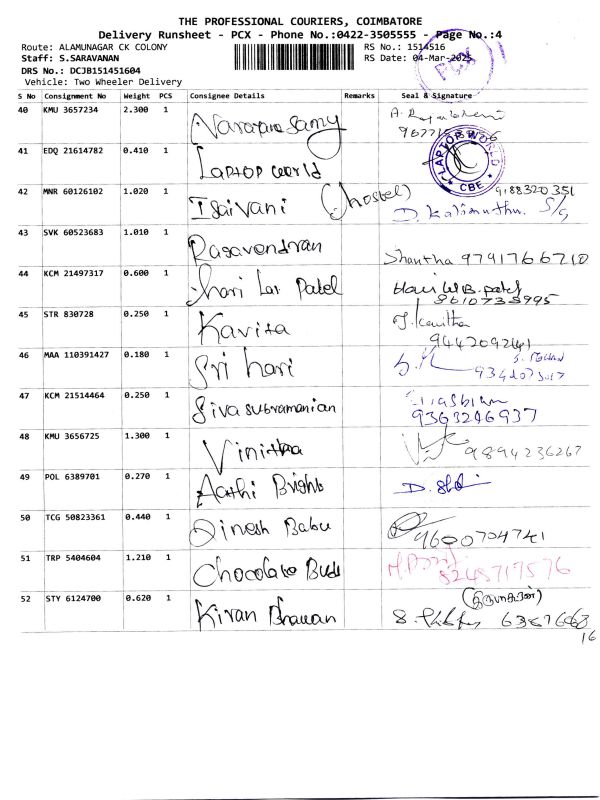 THE PROFESSIONAL COURIERS, COIMBATORE
Delivery Runsheet - PCX - Phone No.:0422-3505555 - Page No.:4
Route: ALAMUNAGAR CK COLONY
RS No.: 1514516
Staff: S.SARAVANAN
RS Date: 04-Mar-2025
DRS No.: DCJB151451604
Vehicle: Two Wheeler Delivery
S No Consignment No Weight PCS Consignee Details Remarks Seal & Signature
40 KMU 3657234 2.300 1 Narayana Samy
41 EDQ 21614782 0.410 1 Laptop world LAPTOP WORLD CBE
42 MNR 60126102 1.020 1 Isaivani (hostel) 9188320351 D. Kalimuthu. S/g
43 SVK 60523683 1.010 1 Ragavendran Shantha 9791766710
44 KCM 21497317 0.600 1 Hari Lal Patel Hari W.B. patel 8610733995
45 STR 830728 0.250 1 Kavita J. Kavitha 9442092441
46 MAA 110391427 0.180 1 Sri hari
47 KCM 21514464 0.250 1 Sivasubramanian 9363246937
48 KMU 3656725 1.300 1 Vinitha 9894236267
49 POL 6389701 0.270 1 Aathi Bright D.
50 TCG 50823361 0.440 1 Dinesh Babu 9600704741
51 TRP 5404604 1.210 1 Chocolate Buds 8248717576
52 STY 6124700 0.620 1 Kiran Bhawan S. 6387668
16